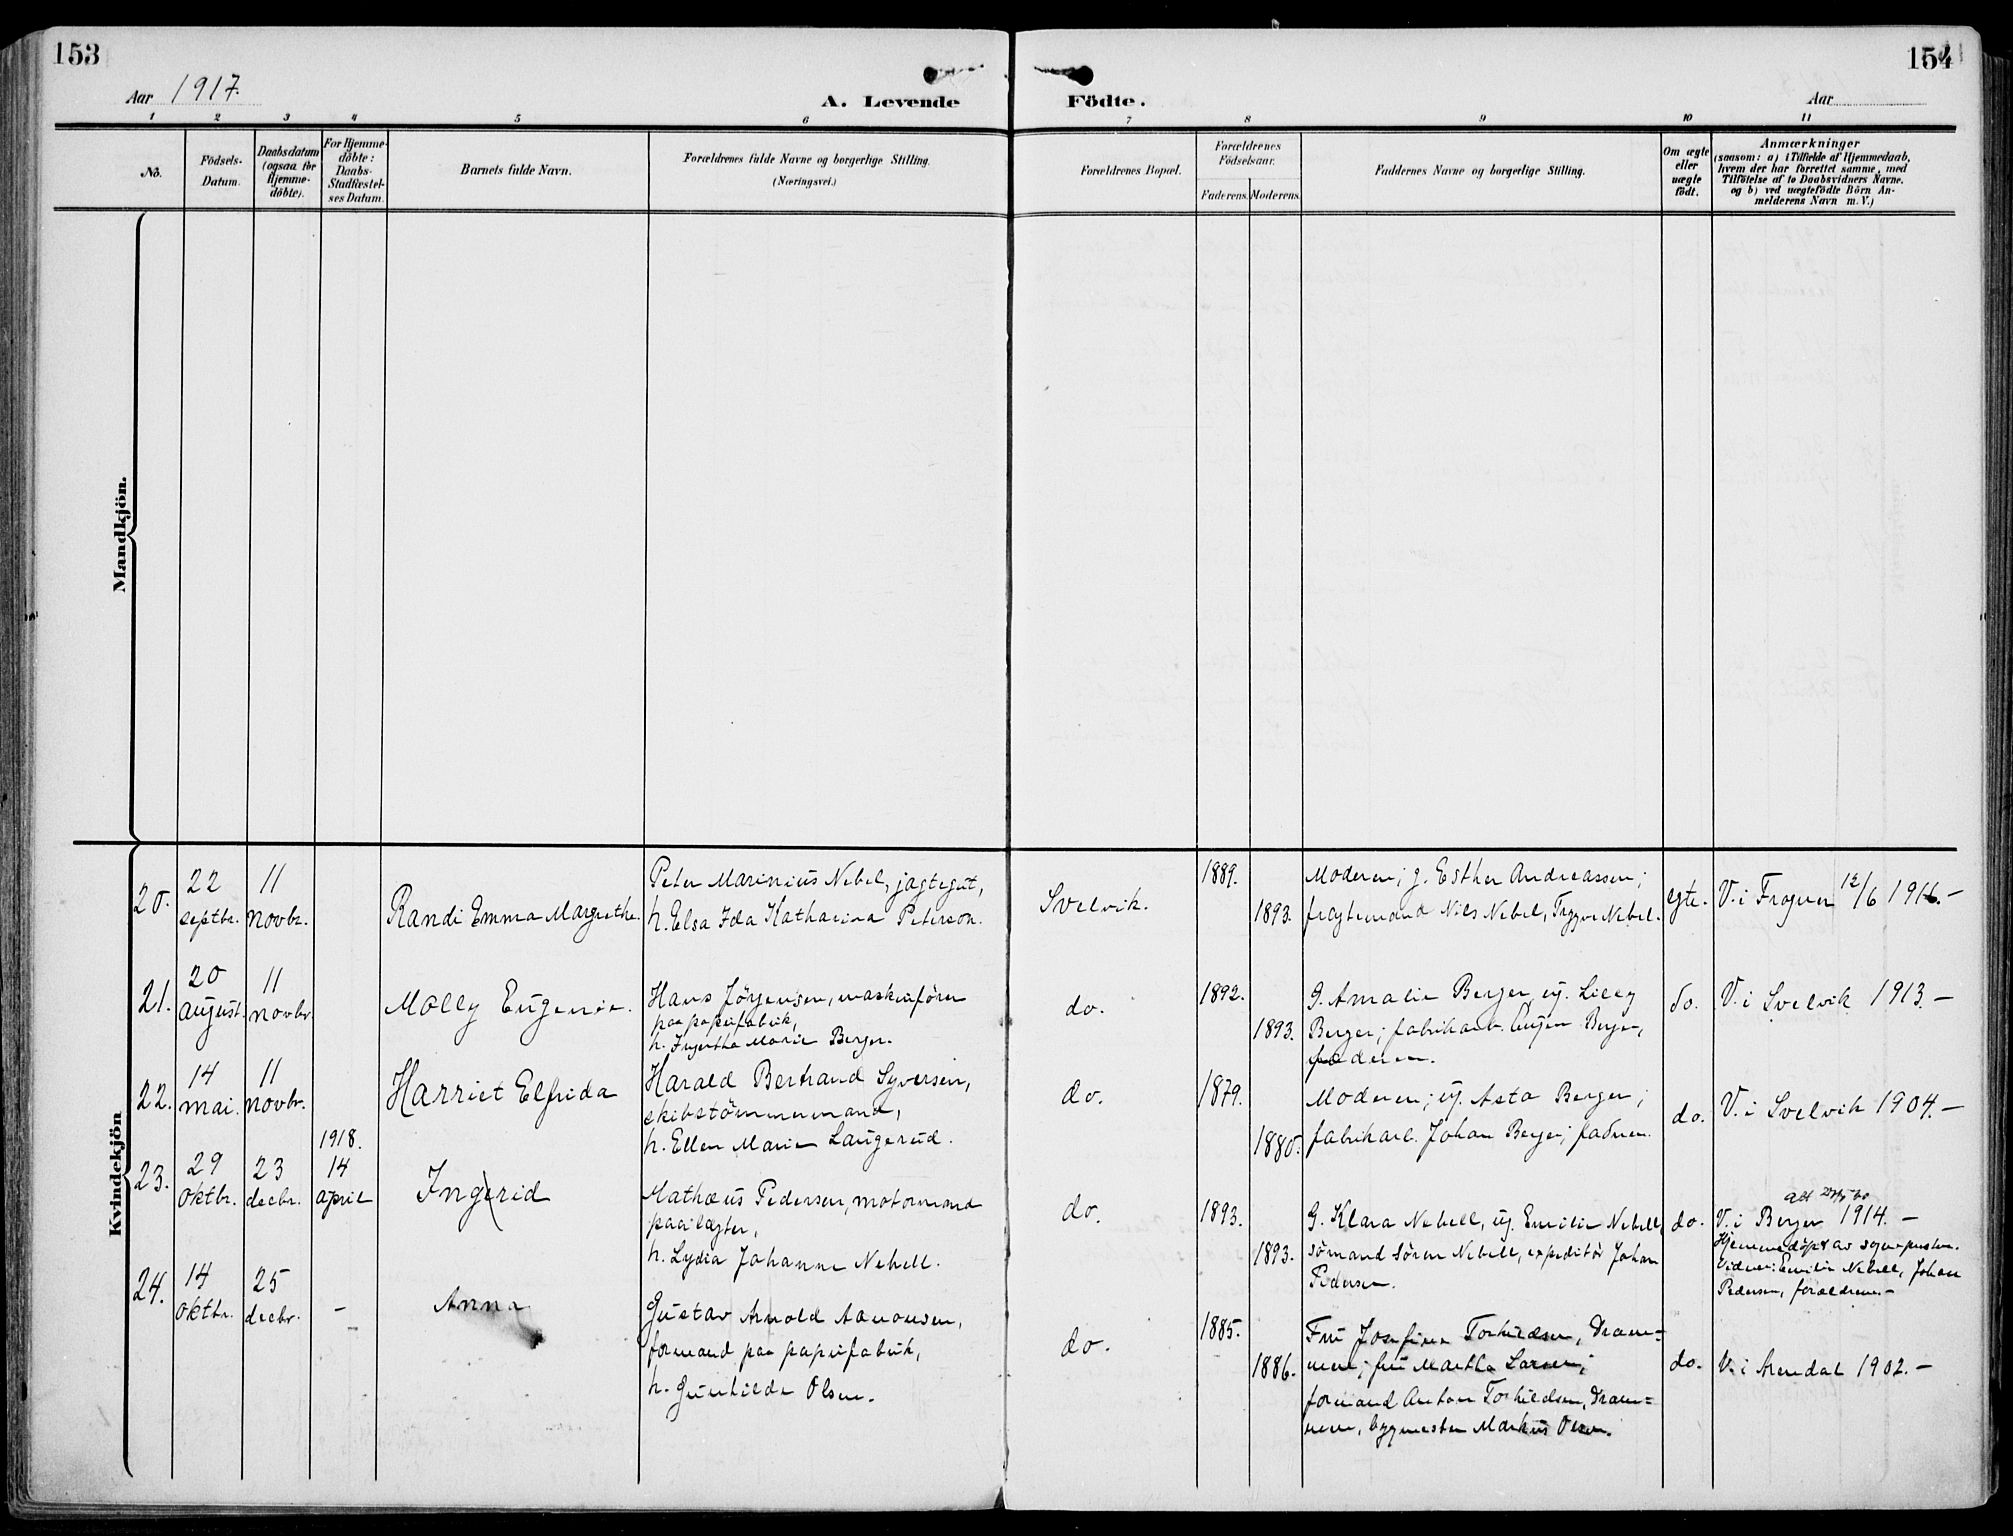 153
154
Aar 1917.
A. Levende Födte.
Aar
1 2 3 4 5 6 7 8 9 10 11
No.
Födsels-
Datum.
Daabsdatum
(ogsaa for
Hjemme-
döbte).
For Hjemme-
döbte:
Daabs-
Stadfæstel-
ses Datum.
Barnets fulde Navn.
Forældrenes fulde Navne og borgerlige Stilling.
(Næringsvei.)
Forældrenes Bopæl.
Forældrenes
Födselsaar.
Faderens. Moderens.
Faddernes Navne og borgerlige Stilling.
Om ægte
eller
uægte
födt.
Anmærkninger
(saasom: a) i Tilfælde af Hjemmedaab,
hvem der har forrettet samme, med
Tilföielse af to Daabsvidners Navne.
og b) ved uægtefödte Börn An-
melderens Navn m. V.)
Mandkjön.
Kvindekjön
20.
22
septbr.
11
novbr.
Randi Emma Margrethe
Peter Marinius Nebel, jagtegut,
h. Elsa Ida Katharina Peterson.
Svelvik.
1889.
1893.
Moderen; g. Esther Andreassen;
fragtemand Nils Nebel, Trygve Nebel.
egte.
V. i Frogner 12/6 1916.-
21.
20
august.
11
novbr.
Molly Eugenie.
Hans Jørgensen, maskinfører
paa papirfabrik,
h. Ingertha Marie Berger.
do.
1892.
1893.
G. Amalie Berger, ug. Lilly
Berger; fabrikarb. Berger,
faderen.
do.
V. i Svelvik 1913.-
22.
14
mai.
11
novbr.
Harriet Elfrida
Harald Bertrand Syversen,
skibstømmermand,
h. Ellen Marie Laugerud.
do.
1879.
1880.
Moderen; ug. Asta Berger;
fabrikarb. Johan Berger; faderen.
do.
V. i Svelvik 1904.-
23.
29
oktbr.
23
decbr.
1918.
14
april
Ingerid
Mathæus Pedersen, motormand
paa lægter,
h. Lydia Johanne Nebell.
do.
1893.
1893.
G. Klara Nebell, ug. Emilie Nebell,
sømand Søren Nebell, expeditør Johan
Pedersen.
do.
V. i Berger 1914.-
Hjemmedøpt av sognepresten.
Vidner: Emilie Nebell, Johan
Pedersen, forældrene.-
24.
14
oktbr.
25
decbr.
-
Anna
Gustav Arnold Aanonsen,
formand paa papirfabrik,
h. Gunhilda Olsen.
do.
1885.
1886.
Fru Josefine Torkildsen, Dram-
men; fru Martha Larsen;
formand Anton Torkildsen, Dram-
men, bygmester Markus Olsen.
do.
V. i Arendal 1902.-